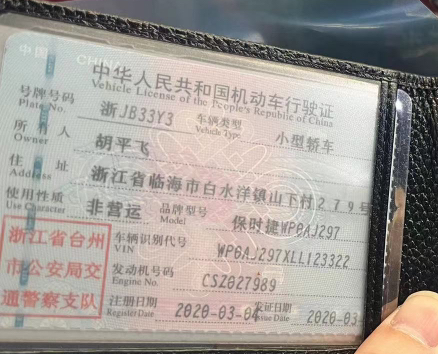 中国 CHINA
中华人民共和国机动车行驶证
Vehicle License of the People's Republic of China
号牌号码 Plate No. 浙JB33Y3 车辆类型 Vehicle Type 小型轿车
所有人 Owner 胡平飞
住址 Address 浙江省临海市白水洋镇山下村279号
使用性质 Use Character 非营运 品牌型号 Model 保时捷WP0AJ297
浙江省台州 车辆识别代号 VIN WP0AJ297XLL123322
市公安局交 发动机号码 Engine No. CSZ027989
通警察支队 注册日期 Register Date 2020-03-04 发证日期 Issue Date 2020-03